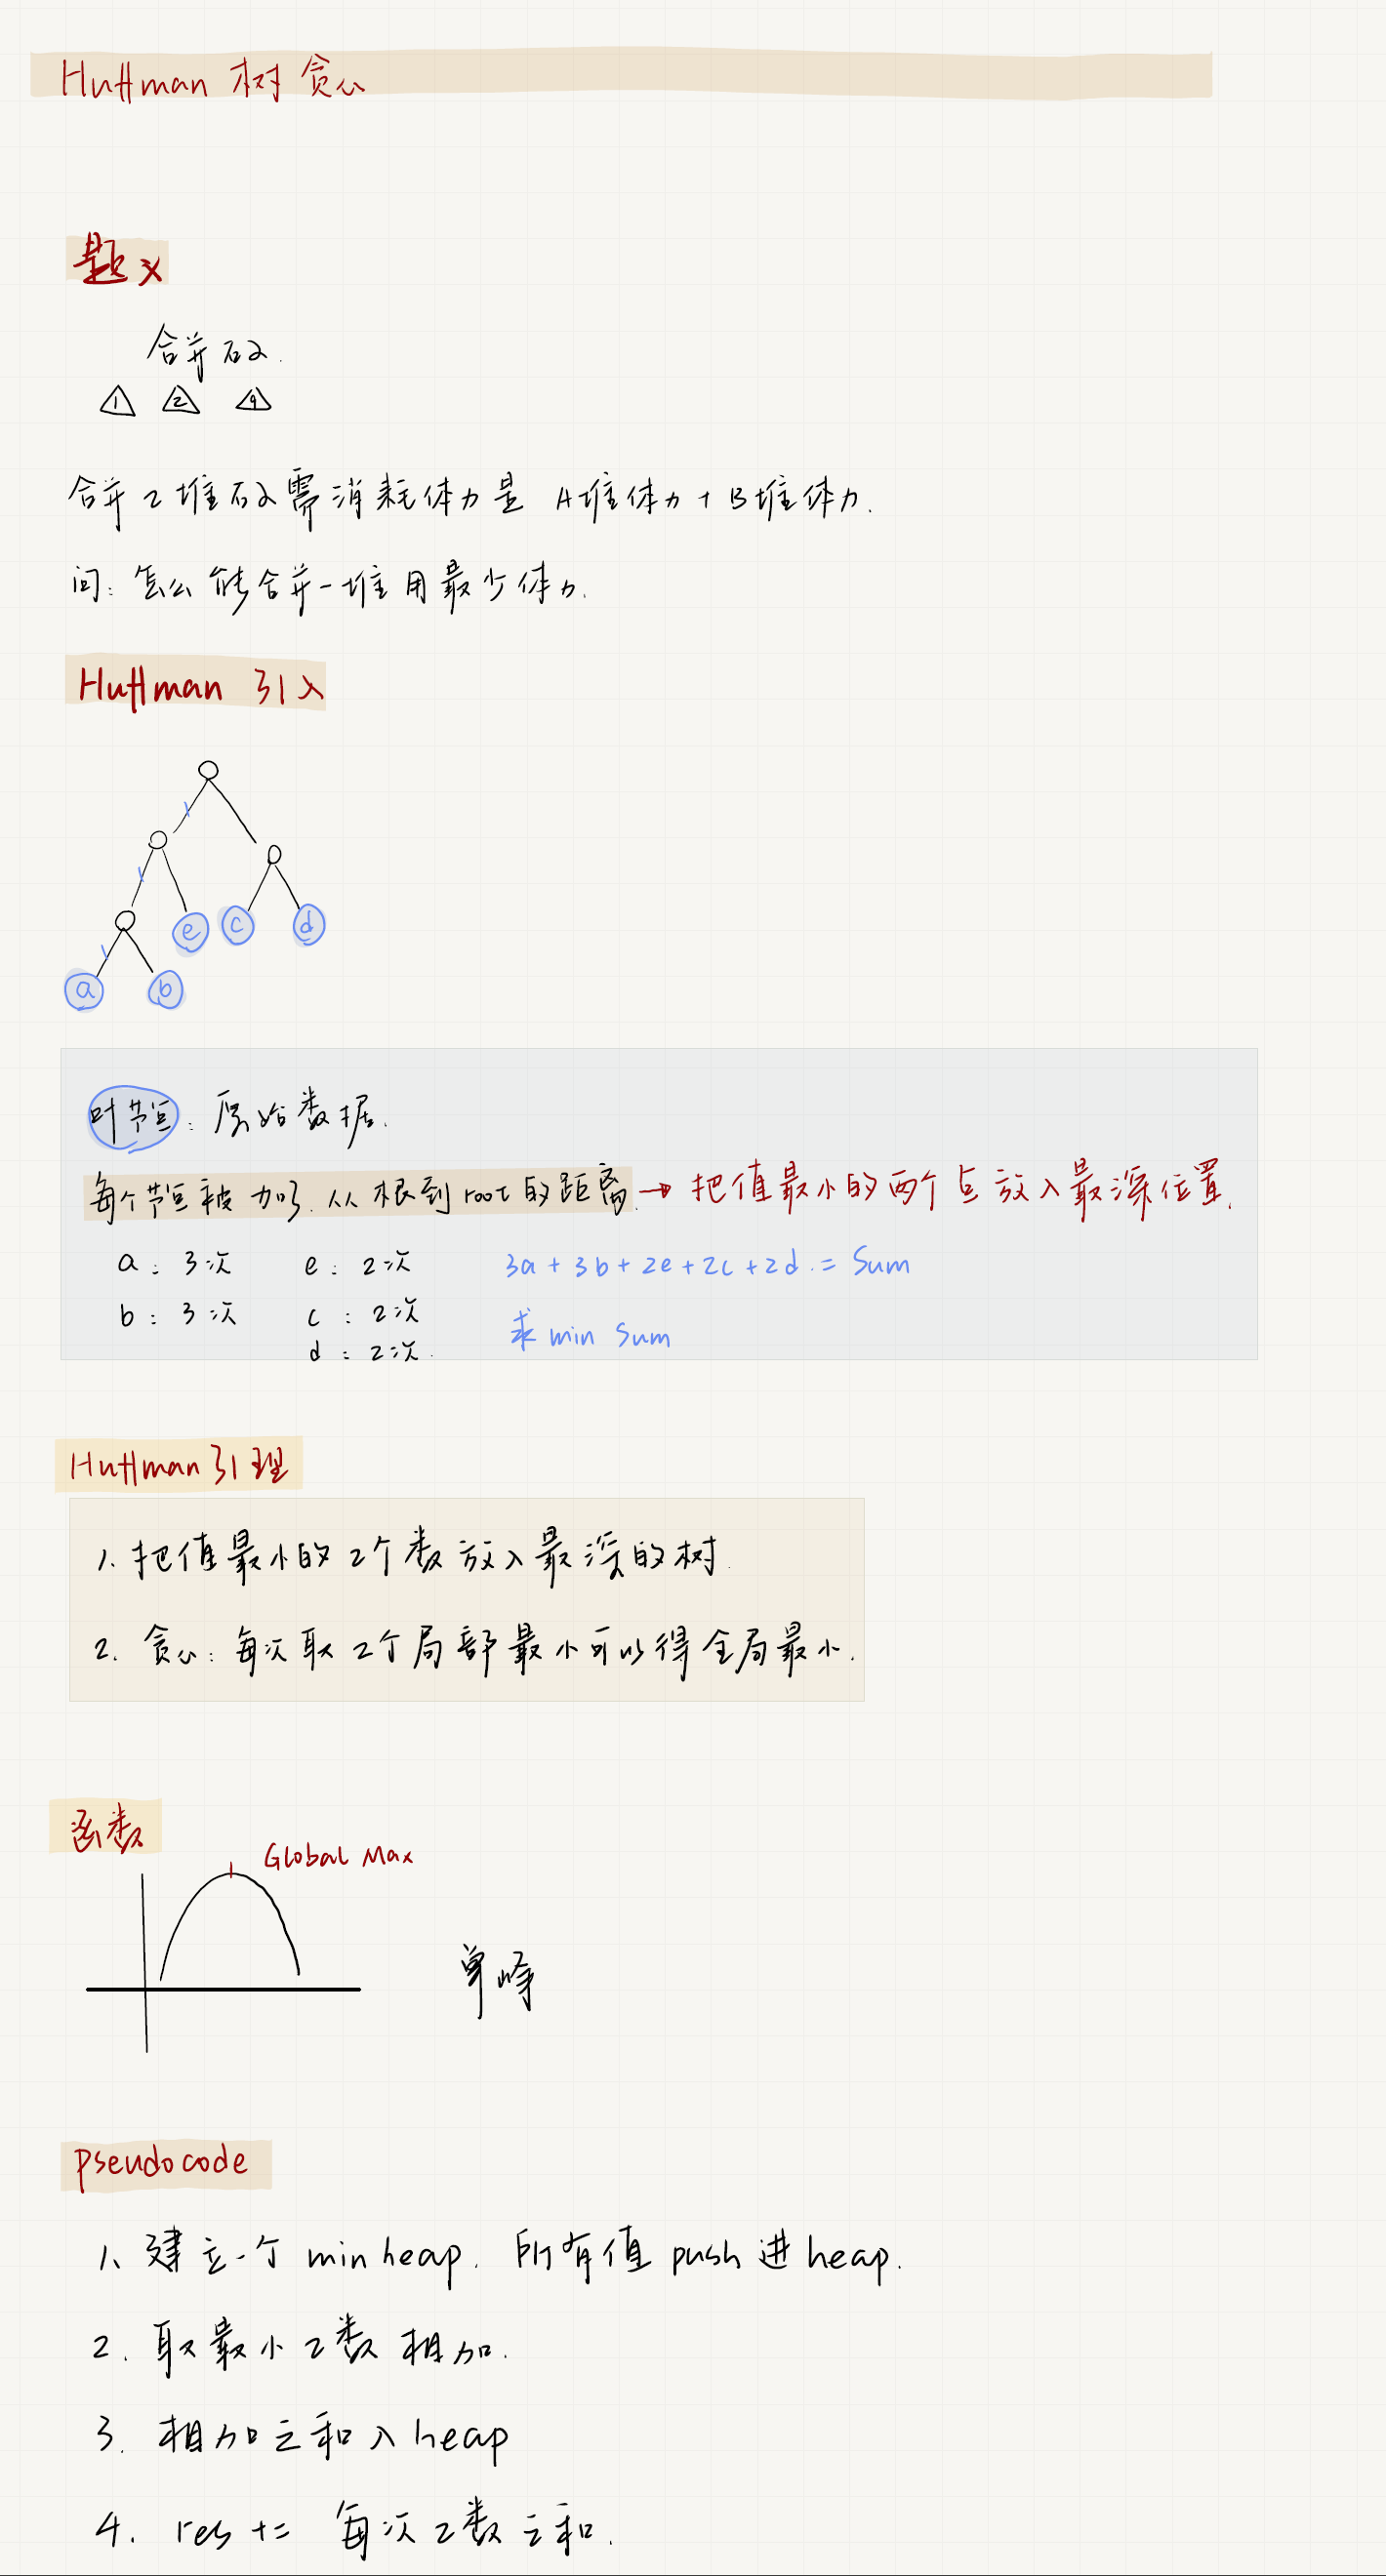 Huffman 树贪心
题义
合并石子.
1 2 9
合并2堆石子需消耗体力是 A堆体力 + B堆体力.
问: 怎么能合并一堆用最少体力.
Huffman 引入
e c d
a b
叶节点: 原始数据.
每个节点被加了. 从根到root的距离. → 把值最小的两个点放入最深位置.
a: 3次 e: 2次 3a + 3b + 2e + 2c + 2d. = Sum
b: 3次 c: 2次 求 min Sum
d: 2次.
Huffman 引理
1. 把值最小的2个数放入最深的树.
2. 贪心: 每次取2个局部最小可以得全局最小.
函数
Global Max
单峰
pseudocode
1. 建立一个 min heap. 所有值 push 进 heap.
2. 取最小2数相加.
3. 相加之和入heap
4. res += 每次2数之和.